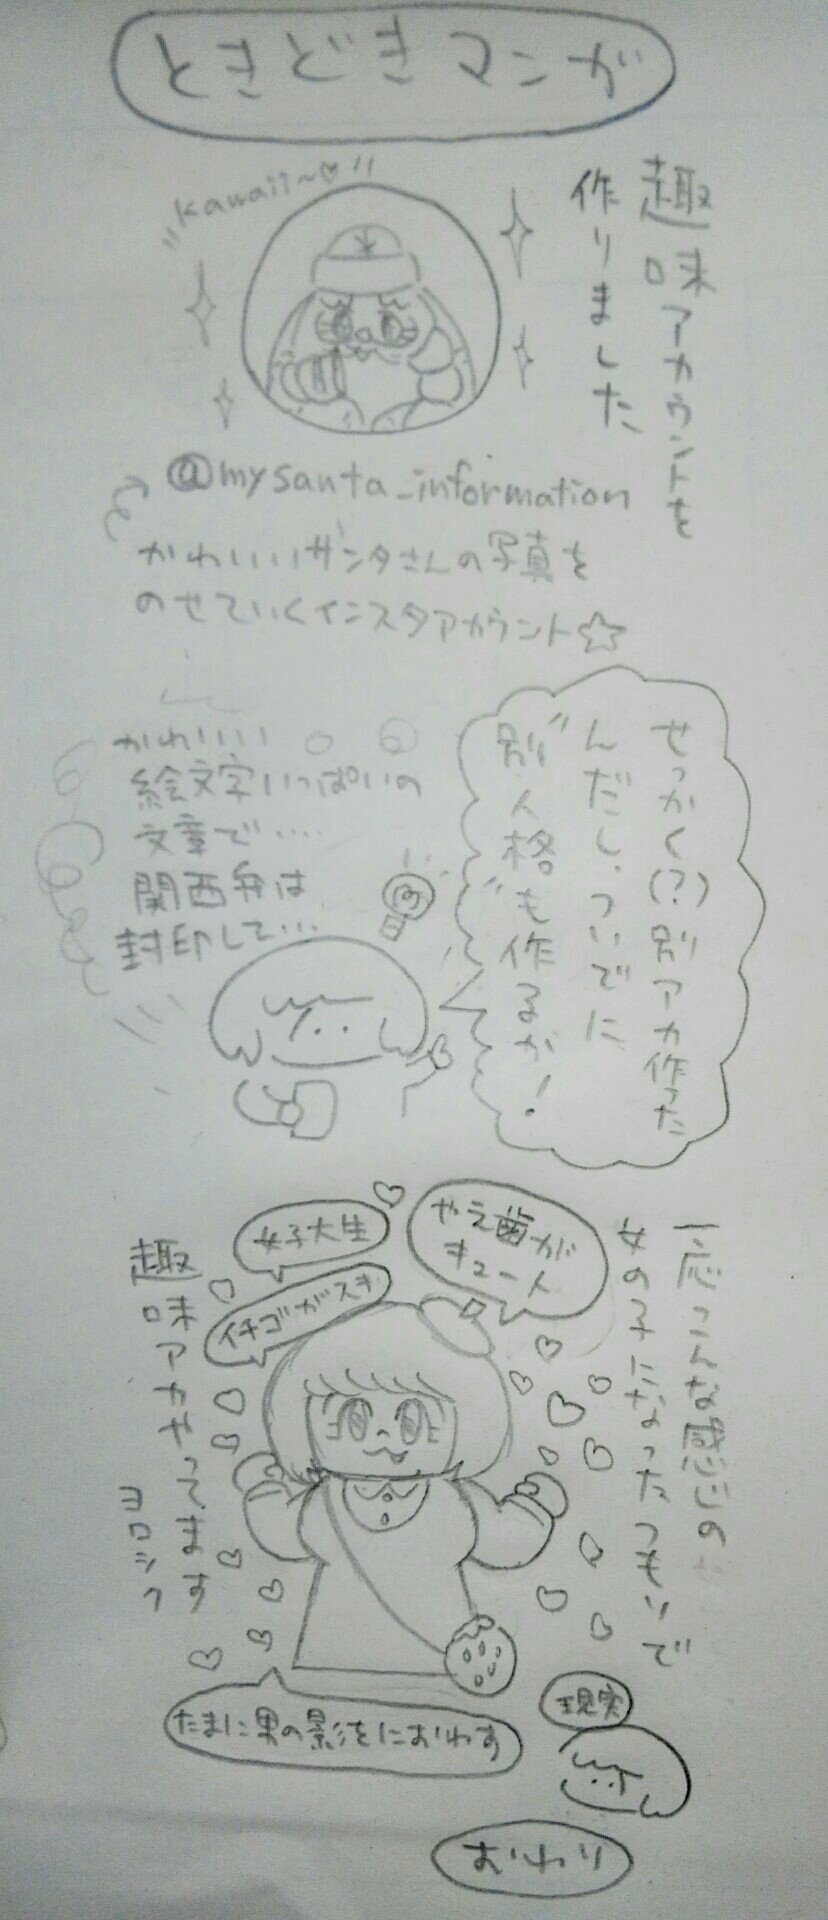 ときどきマンガ
趣味アカウントを
作りました
Kawaii〜♡
@mysanta_information
かわいいサンタさんの写真を
のせていくインスタアカウント☆
せっかく(?)別アカ作った
んだし、ついでに
"別人格"も作るか!
かわいい
絵文字いっぱいの
文章で…
関西弁は
封印して…
一応こんな感じの
女の子になったつもりで
やえ歯が
キュート
女子大生
イチゴがスキ
趣味アカやってます
ヨロシク
たまに男の影をにおわす
現実
おわり